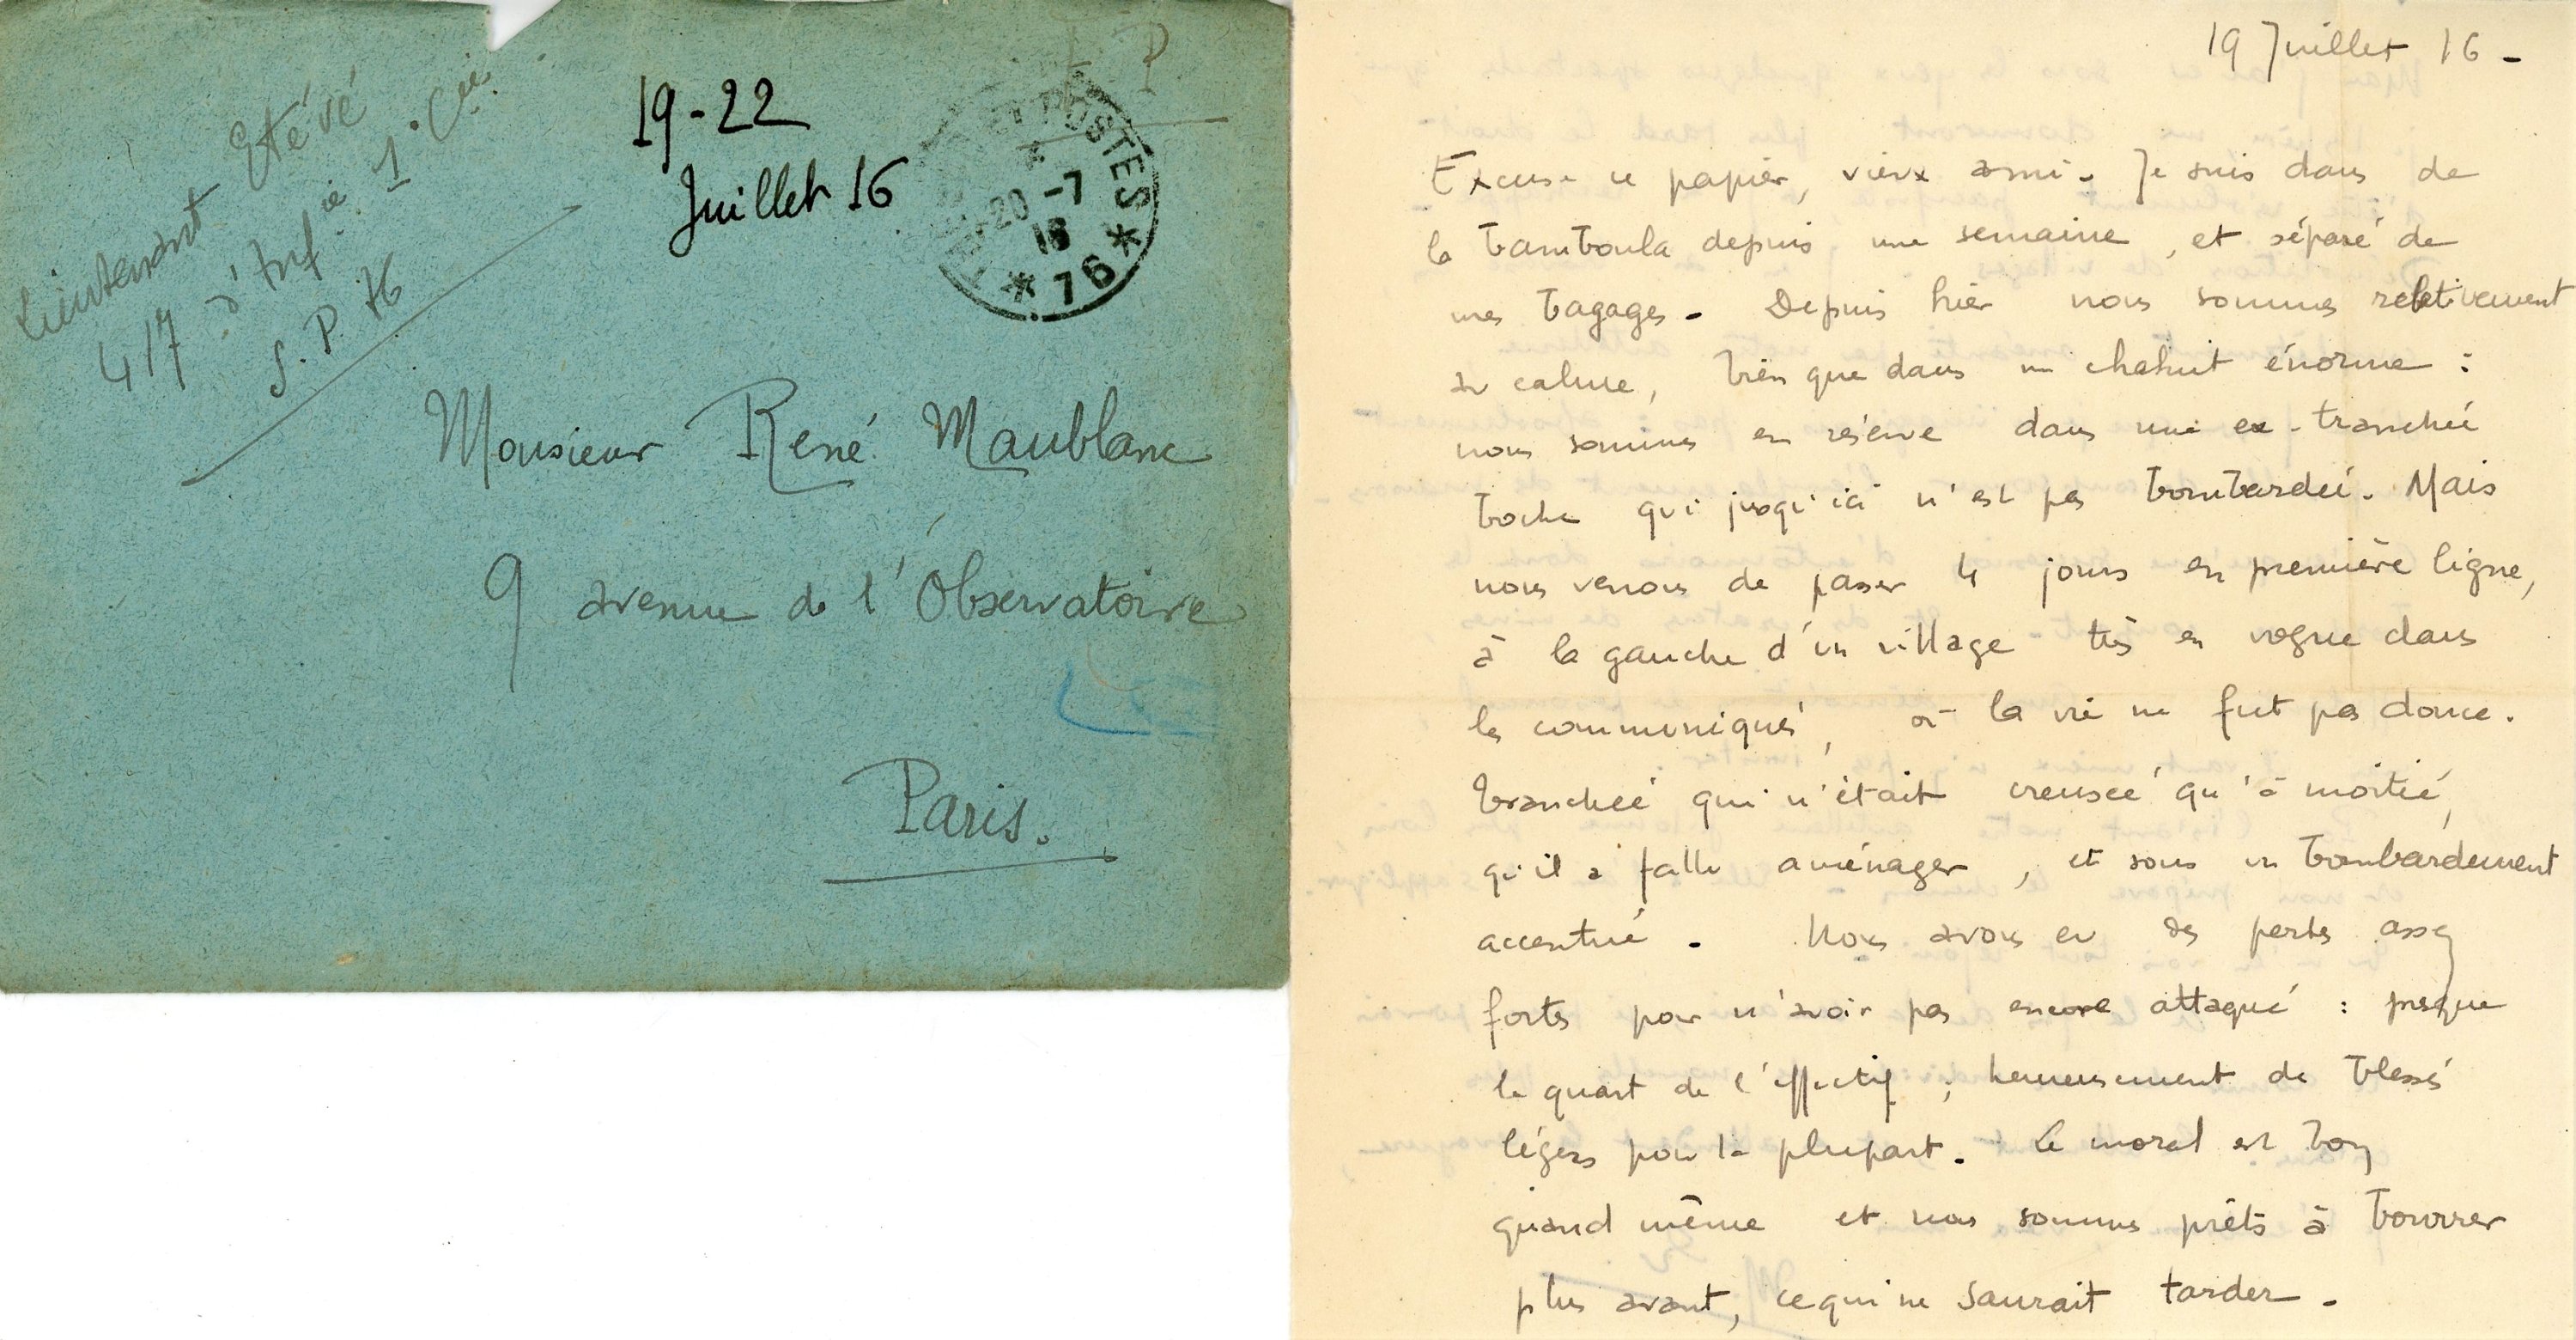 Lieutenant Etévé
417 d'Infie 1° Cie
S. P. 76
19-22
Juillet 16
F P
ET POSTES
* 20 -7
16
* 76 *
Monsieur René Maublanc
9 avenue de l'Observatoire
Paris.
19 Juillet 16 -
Excuse ce papier, vieux ami - Je suis dans de
la bamboula depuis une semaine, et séparé de
mes bagages - Depuis hier nous sommes relativement
au calme, bien que dans un chahut énorme :
nous sommes en réserve dans une ex-tranchée
boche qui jusqu'ici n'est pas bombardée. Mais
nous venons de passer 4 jours en première ligne,
à la gauche d'un village très en vogue dans
les communiqués, où la vie ne fut pas douce.
Tranchée qui n'était creusée qu'à moitié,
qu'il a fallu aménager, et sous un bombardement
accentué - Nous avons eu des pertes assez
fortes pour n'avoir pas encore attaqué : presque
le quart de l'effectif ; heureusement de blessés
légers pour la plupart. Le moral est bon
quand même et nous sommes prêts à bourrer
plus avant, ce qui ne saurait tarder -